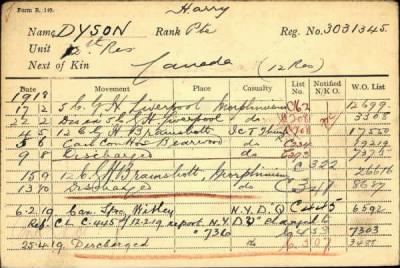 Form R. 149.
Harry
Name DYSON Rank Pte Reg. No. 3031345.
Unit Res
Next of Kin Canada (12 Res)
Date Movement Place Casualty List No. Notified N/K O. W.O. List
1918
17 2 5 C.G.H. Liverpool Morphinism C162 12699
22 2 Dis 5 C.G.H Liverpool do 3308
4 5 12 C.G.H Bramshott I.C.T. 17560
5 6 Can Con Hos Bearwood do 19219
9 8 Discharged do 7395
C.322
15 9 12 C.G.H Bramshott, Morphinism 26616
13 10 Discharged do C348 8687
6.2.19 Can. Spec Witley N.Y.D. C445 6592
Ref. C L C.445 of 12.2.19 report N.Y.D. changed to
" 7360 7363
25.4.19 Discharged do 507